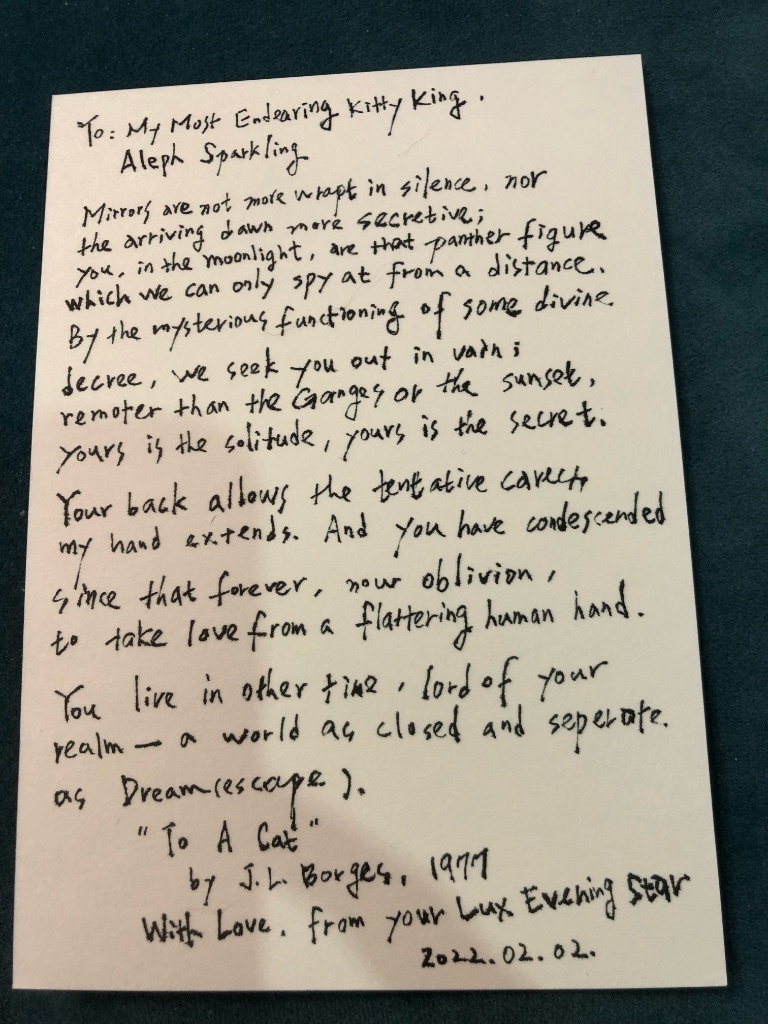 To: My Most Endearing Kitty King.
Aleph Sparkling
Mirrors are not more wrapt in silence, nor
the arriving dawn more secretive;
you, in the moonlight, are that panther figure
which we can only spy at from a distance.
By the mysterious functioning of some divine
decree, we seek you out in vain;
remoter than the Ganges or the sunset,
yours is the solitude, yours is the secret.
Your back allows the tentative caress
my hand extends. And you have condescended
since that forever, now oblivion,
to take love from a flattering human hand.
You live in other time, lord of your
realm — a world as closed and seperate.
as Dream(escape).
"To A Cat"
by J.L. Borges, 1977
With Love, from your Lux Evening Star
2022.02.02.